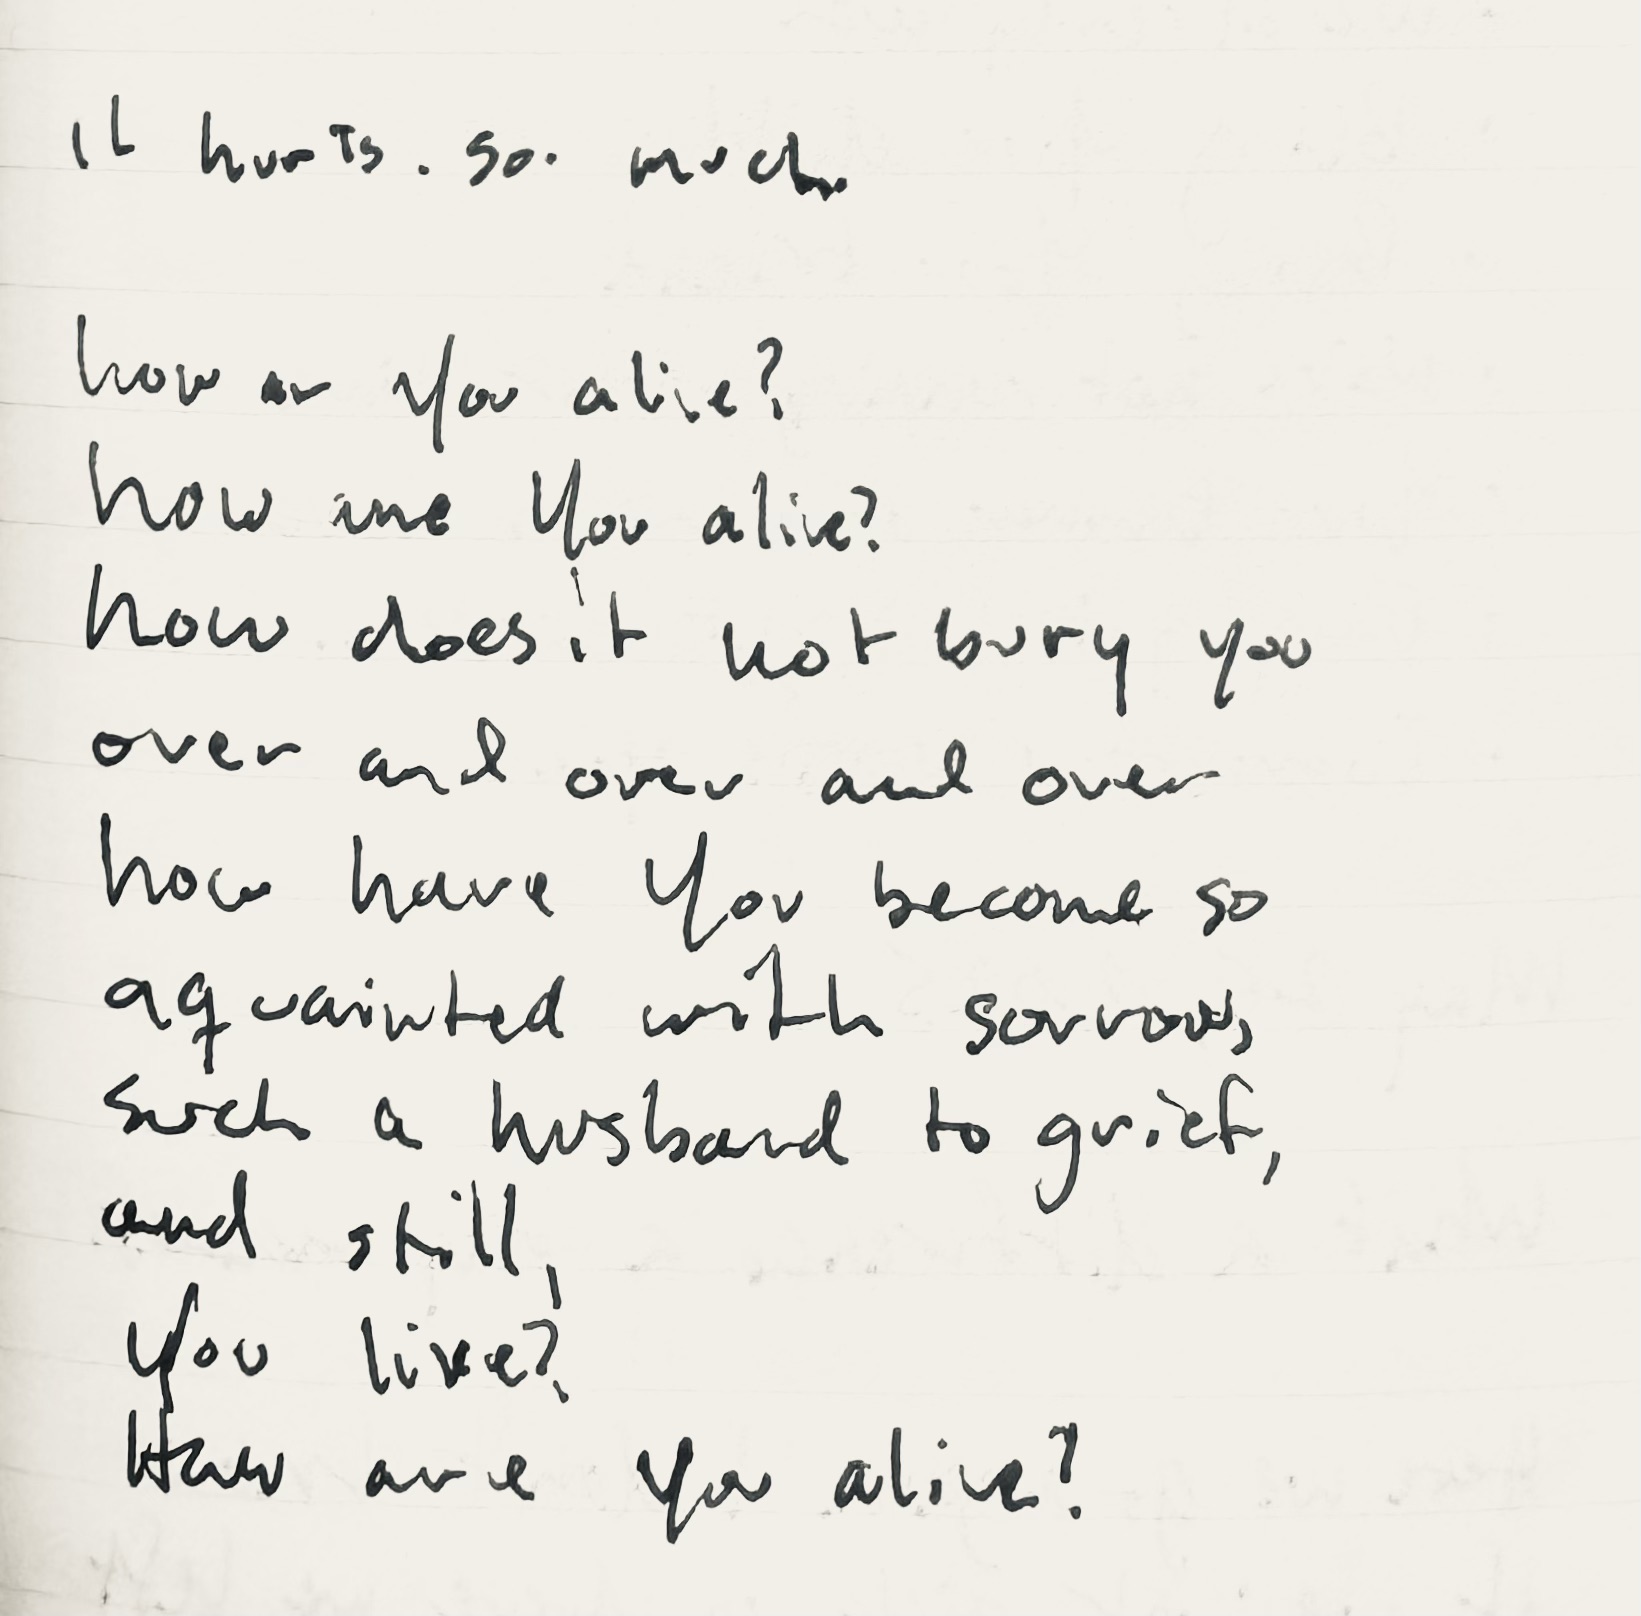 it hurts. so. much.
how ar you alive?
how are you alive?
how does it not bury you
over and over and over
how have you become so
aquainted with sorrow,
such a husband to grief,
and still,
you live?
How are you alive?